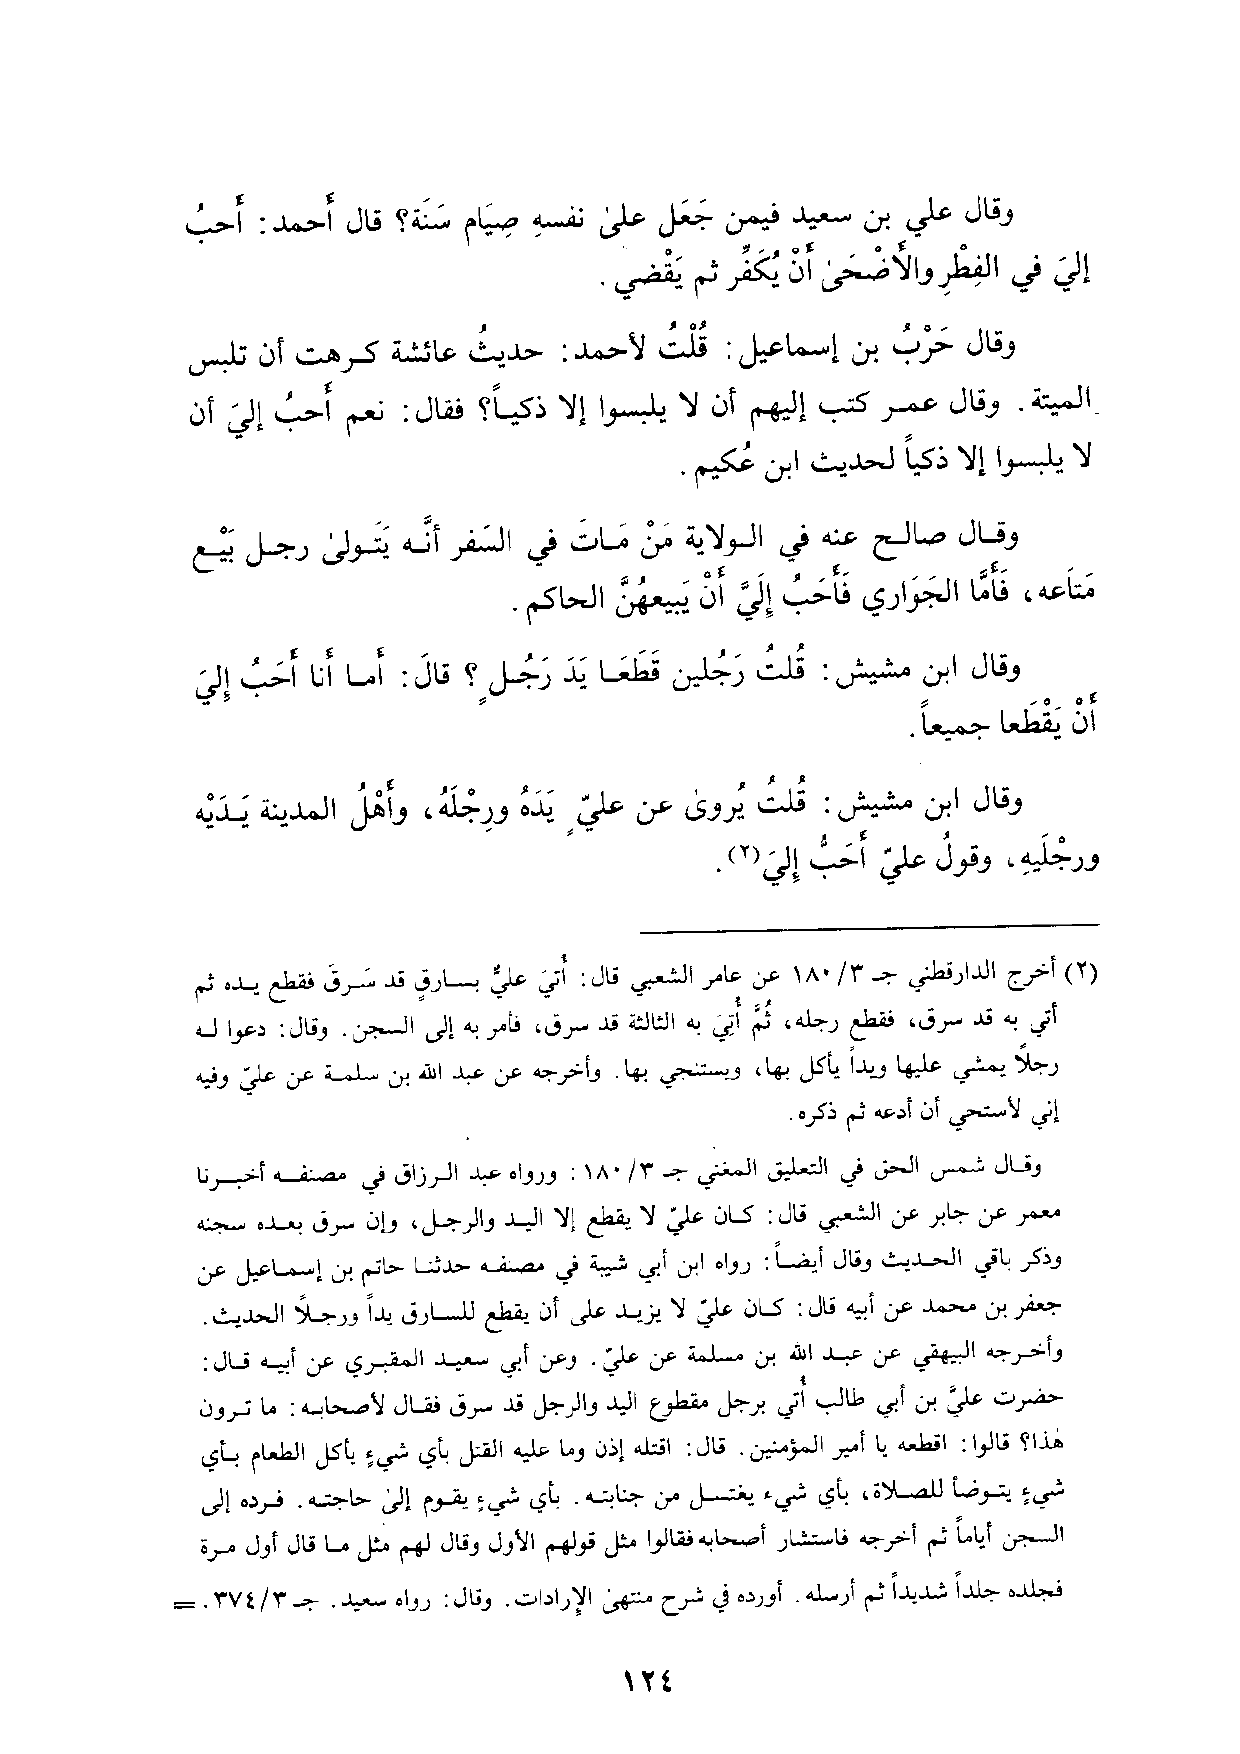 وقال علي بن سعيد فيمن جَعَل علىٰ نفسهِ صِيَام سَنَة؟ قال أَحمد: أَحبُ
إليَ في الفِطْرِ والأَضْحَىٰ أَنْ يُكَفِّر ثم يَقْضي.
وقال حَرْبُ بن إسماعيل: قُلْتُ لأحمد: حديثُ عائشة كرهت أن تلبس
الميتة. وقال عمر كتب إليهم أن لا يلبسوا إلا ذكياً؟ فقال: نعم أَحبُ إليَ أن
لا يلبسوا إلا ذكياً لحديث ابن عُكيم.
وقال صالح عنه في الولاية مَنْ مَاتَ في السَفر أنَّه يَتَولىٰ رجل بَيْع
مَتَاعه، فَأَمَّا الجَوَاري فَأَحَبُ إلَيَّ أَنْ يَبيعهُنَّ الحاكم.
وقال ابن مشيش: قُلتُ رَجُلين قَطَعَا يَدَ رَجُلٍ؟ قالَ: أَما أَنا أَحَبُ إليَ
أَنْ يَقْطَعا جميعاً.
وقال ابن مشيش: قُلتُ يُروىٰ عن عليّ ٍ يَدَهُ ورِجْلَهُ، وأَهْلُ المدينة يَدَيْه
ورجْلَيهِ، وقولُ عليّ أَحَبُّ إليَ(٢).
(٢) أخرج الدارقطني جـ ٣/ ١٨٠ عن عامر الشعبي قال: أُتيَ عليٌّ بسارقٍ قد سَرقَ فقطع يده ثم
أتي به قد سرق، فقطع رجله، ثُمَّ أُتِيَ به الثالثة قد سرق، فأمر به إلى السجن. وقال: دعوا له
رجلاً يمشي عليها ويداً يأكل بها، ويستنجي بها. وأخرجه عن عبد الله بن سلمة عن عليّ وفيه
إني لأستحي أن أدعه ثم ذكره.
وقال شمس الحق في التعليق المغني جـ ٣/ ١٨٠: ورواه عبد الرزاق في مصنفه أخبرنا
معمر عن جابر عن الشعبي قال: كان عليّ لا يقطع إلا اليد والرجل، وإن سرق بعده سجنه
وذكر باقي الحديث وقال أيضاً: رواه ابن أبي شيبة في مصنفه حدثنا حاتم بن إسماعيل عن
جعفر بن محمد عن أبيه قال: كان عليّ لا يزيد على أن يقطع للسارق يداً ورجلاً الحديث.
وأخرجه البيهقي عن عبد الله بن مسلمة عن عليّ. وعن أبي سعيد المقبري عن أبيه قال:
حضرت عليَّ بن أبي طالب أُتي برجل مقطوع اليد والرجل قد سرق فقال لأصحابه: ما ترون
هذا؟ قالوا: اقطعه يا أمير المؤمنين. قال: اقتله إذن وما عليه القتل بأي شيءٍ يأكل الطعام بأي
شيءٍ يتوضأ للصلاة، بأي شيء يغتسل من جنابته. بأي شيءٍ يقوم إلىٰ حاجته. فرده إلى
السجن أياماً ثم أخرجه فاستشار أصحابه فقالوا مثل قولهم الأول وقال لهم مثل ما قال أول مرة
فجلده جلداً شديداً ثم أرسله. أورده في شرح منتهىٰ الإرادات. وقال: رواه سعيد. جـ ٣/ ٣٧٤. =
١٢٤